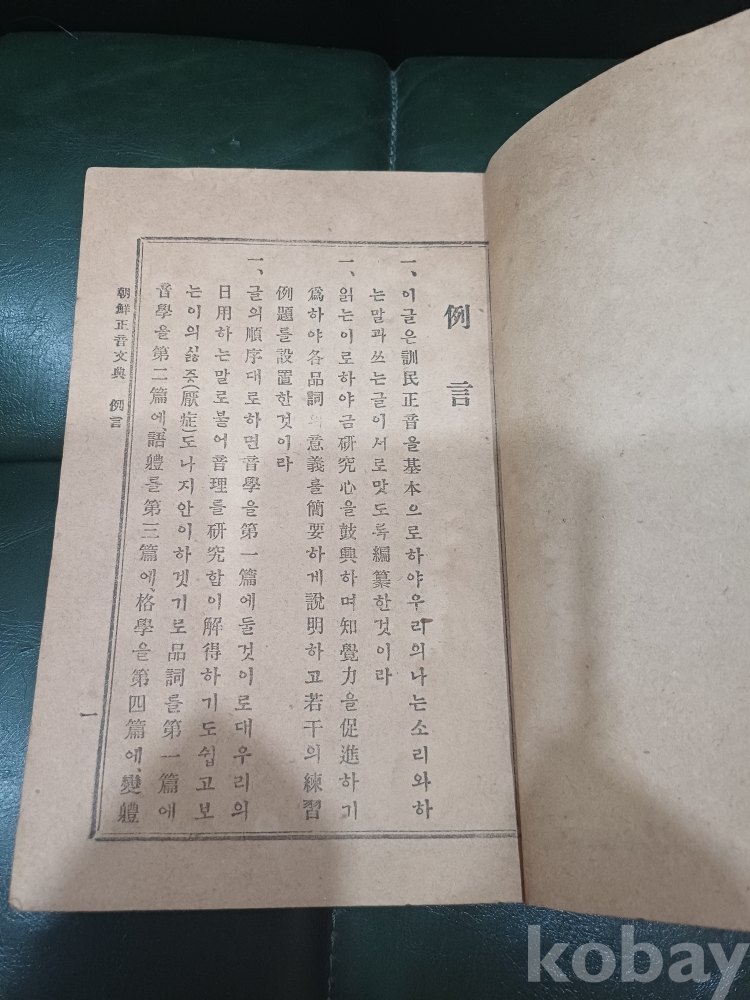 例言
一、이글은訓民正音을基本으로하야우리의나는소리와하
는말과쓰는글이서로맛도록編纂한것이라
一、읽는이로하야금硏究心을鼓興하며知覺力을促進하기
爲하야各品詞의意義를簡要하게說明하고若干의練習
例題를設置한것이라
一、글의順序대로하면音學을第一篇에둘것이로대우리의
日用하는말로불어音理를硏究함이解得하기도쉽고보
는이의싫증(厭症)도나지안이하겟기로品詞를第一篇에
音學을第二篇에、語軆를第三篇에、格學을第四篇에、變軆
朝鮮正音文典 例言
一
kobay